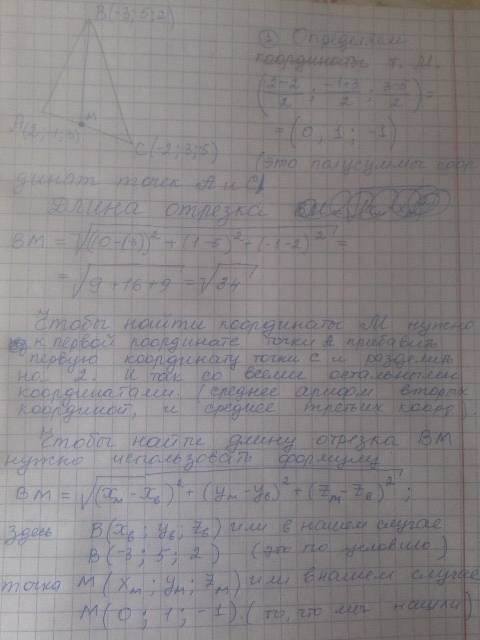 B(-3; 5; 2)
① Определяем
координаты т. М.
(2-2/2 ; -1+3/2 ; 3-5/2) =
= (0, 1 ; -1)
A(2; -1; 3)
М
C(-2; 3; 5)
(это полусуммы коор
динат точек А и С)
Длина отрезка
BM = √((0-(3))² + (1-5)² + (-1-2)²) =
= √(9+16+9) = √34
Чтобы найти координаты М нужно
к первой координате точки А прибавить
первую координату точки С и разделить
на 2. И так со всеми остальными
координатами. (среднее арифм вторых
координат, и среднее третьих коорд).
Чтобы найти длину отрезка ВМ
нужно использовать формулу
BM = √((xм - xв)² + (yм - yв)² + (zм - zв)²) ;
Здесь B(xв ; yв ; zв) или в нашем случае
B(-3 ; 5 ; 2) (это по условию)
точка М(xм ; yм ; zм) или в нашем случае
М(0 ; 1 ; -1). (то, что мы нашли)